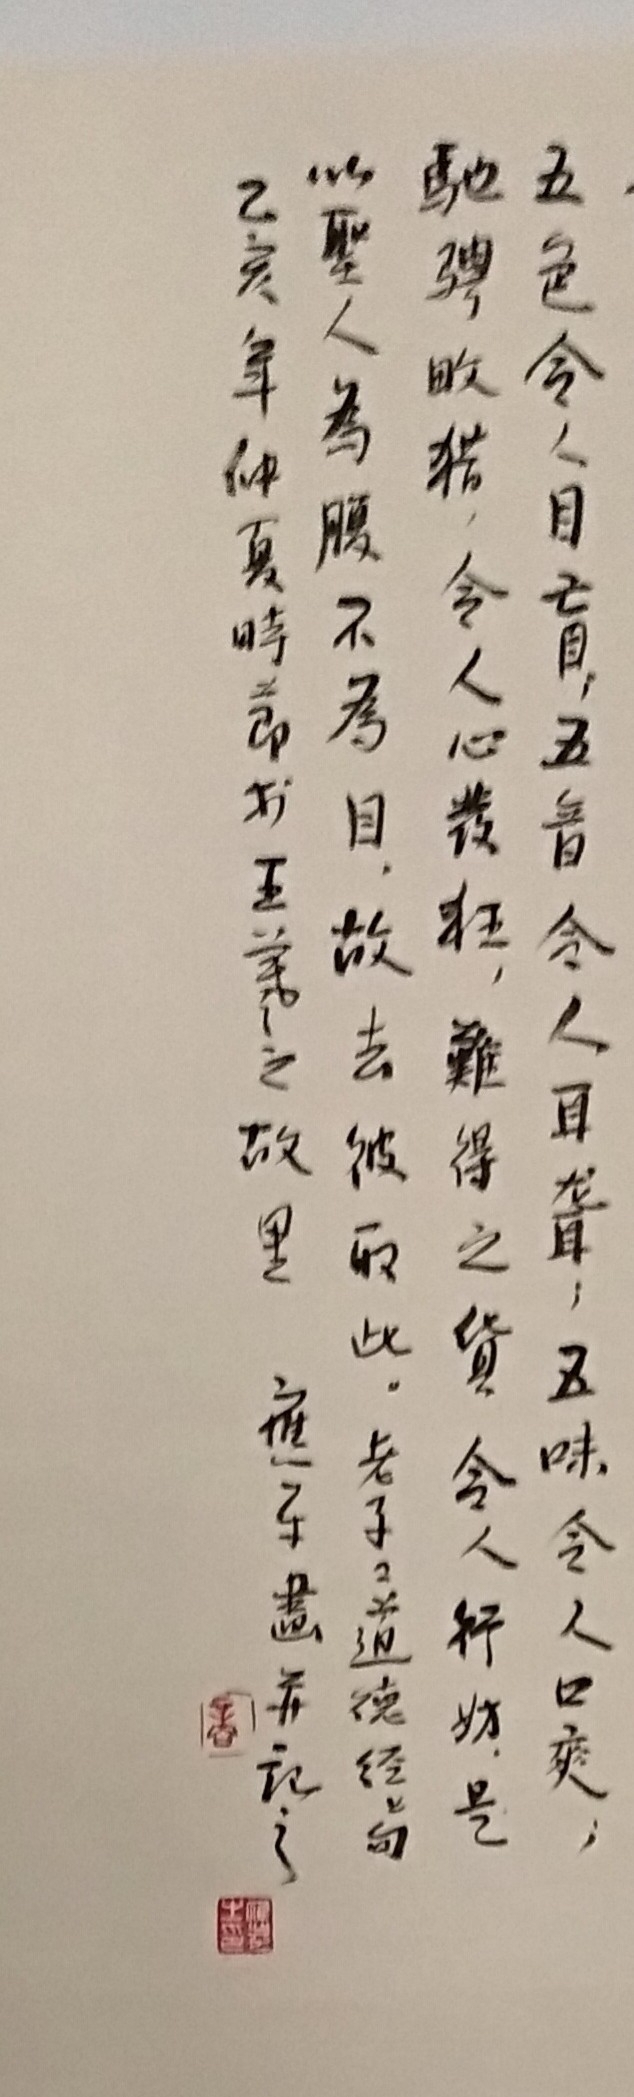 五色令人目盲，五音令人耳聾，五味令人口爽，
馳骋畋猎，令人心發狂，難得之貨令人行妨，是
以聖人為腹不為目，故去彼取此。老子《道德經》句
乙亥年仲夏時節於王羲之故里 應平畫并記之